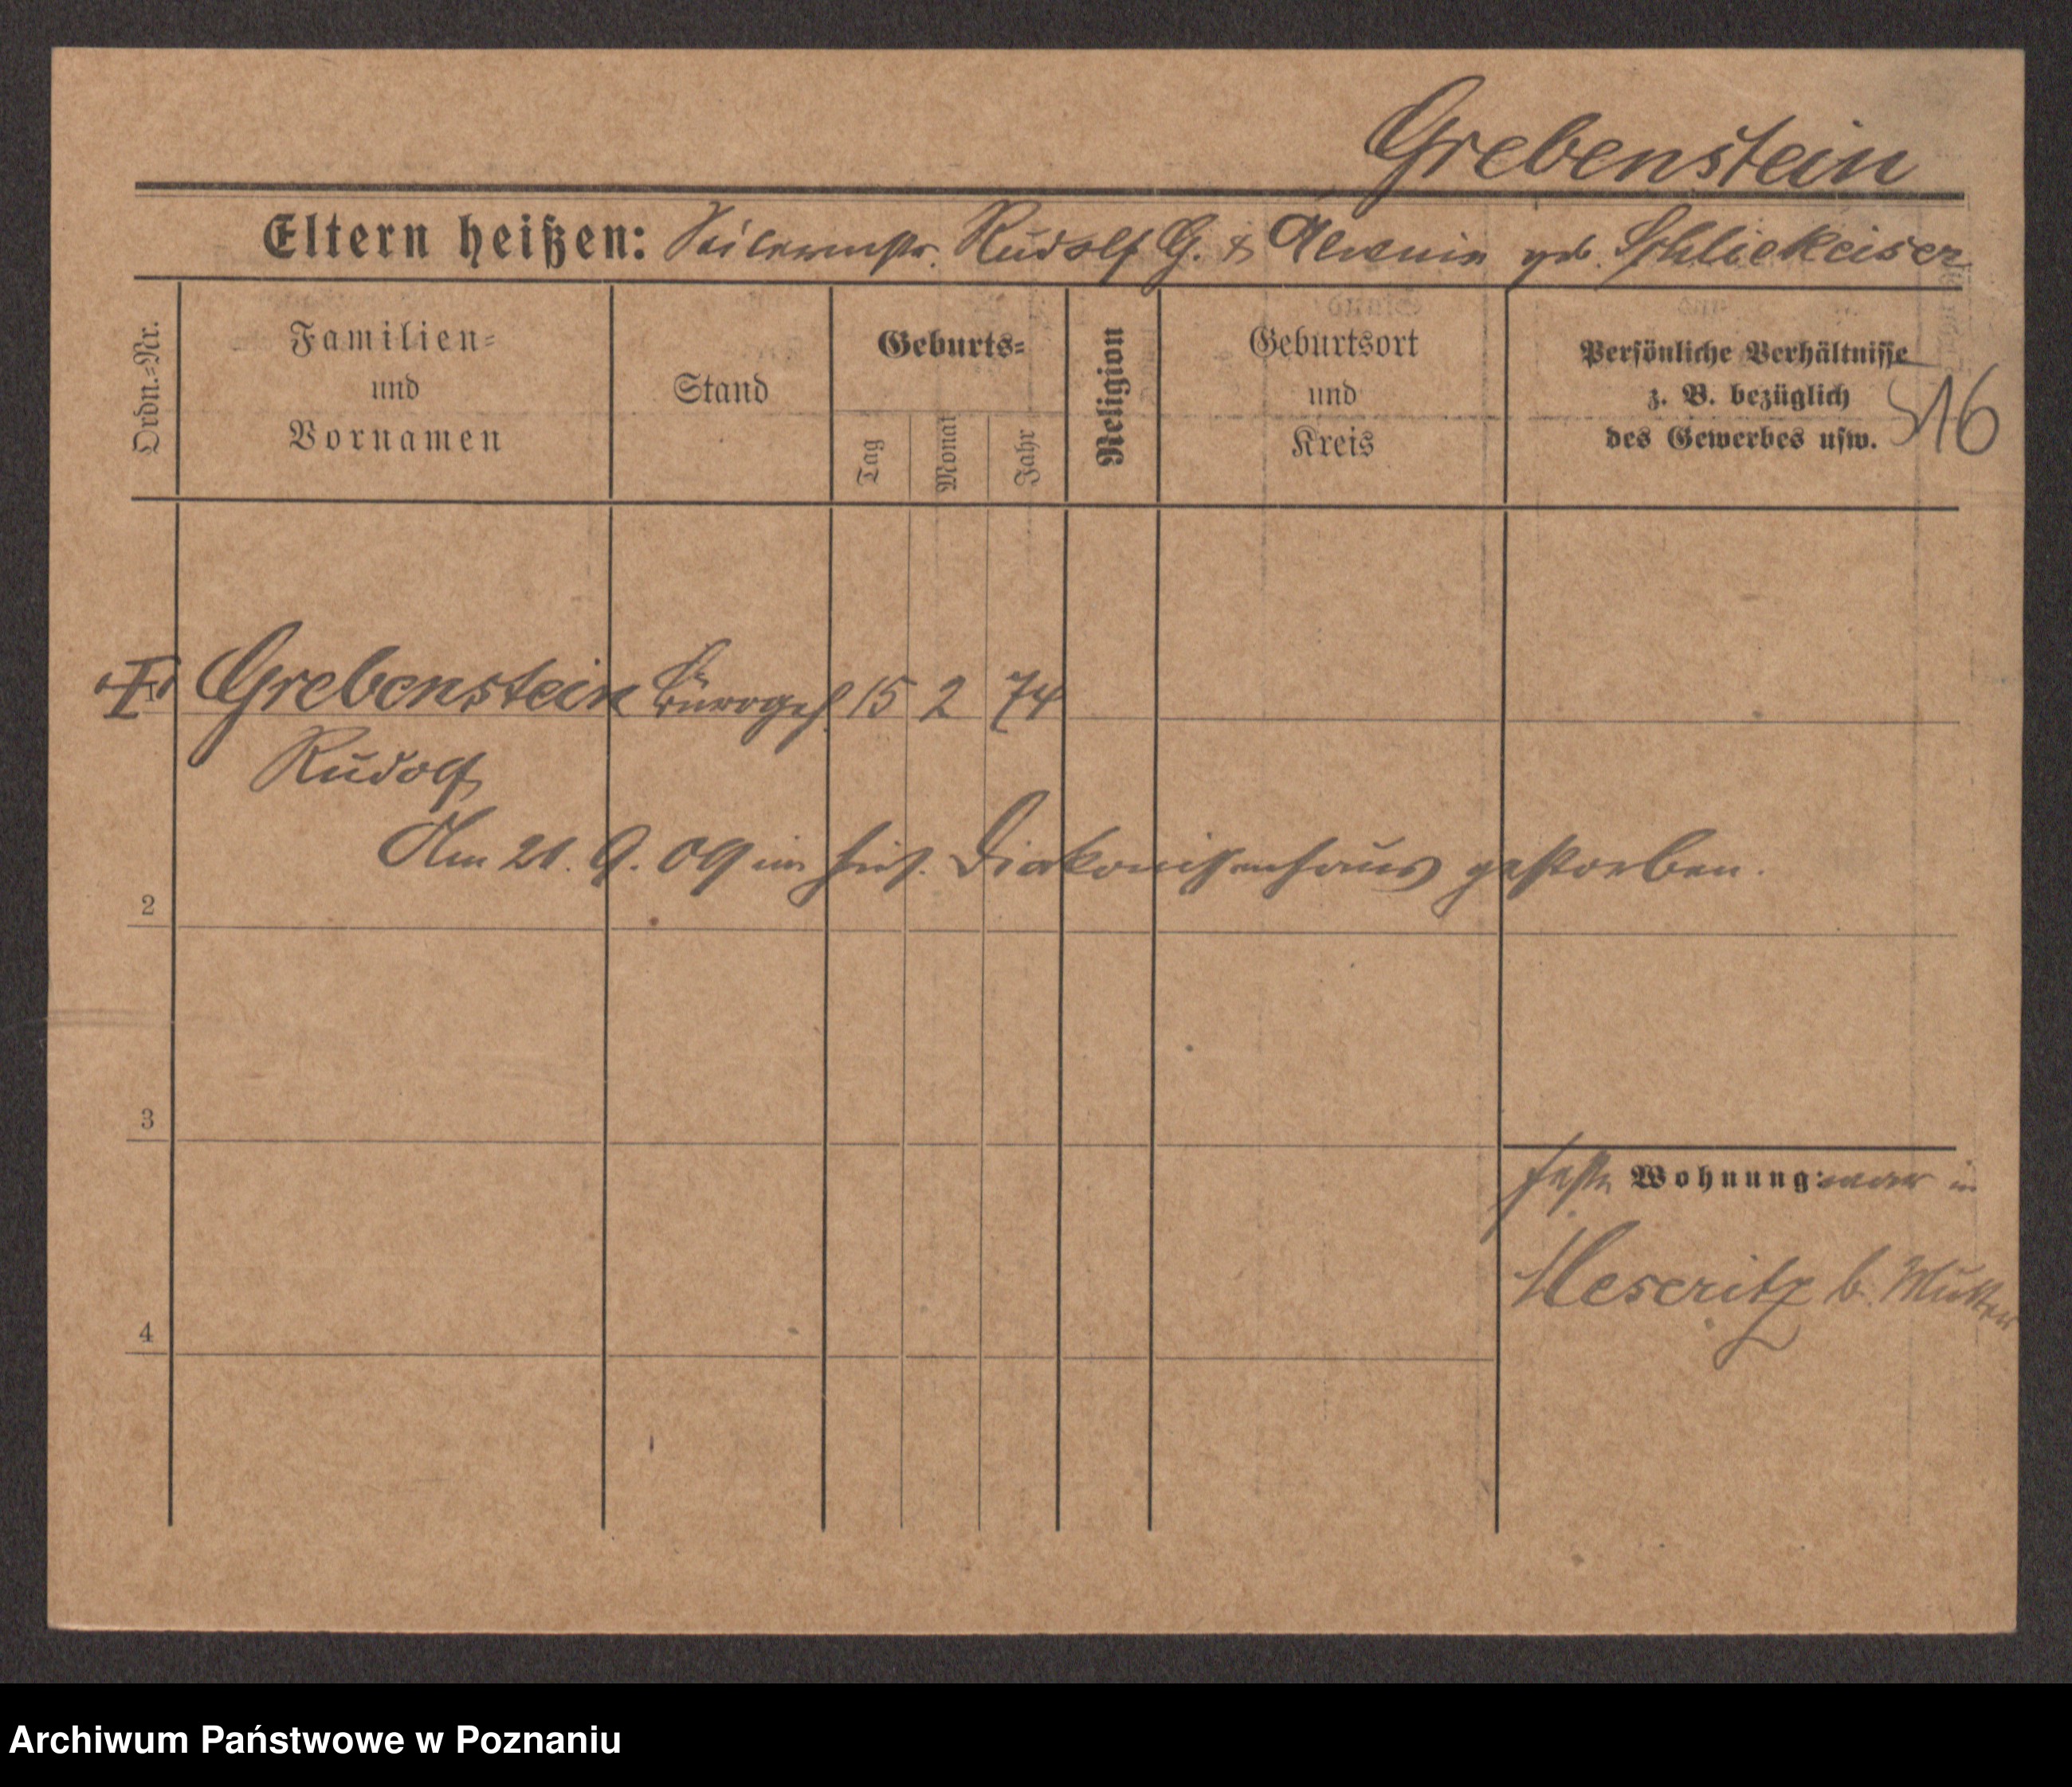 Grebenstein
Eltern heißen: Seilermstr. Rudolf G. & Alwine geb. Schliekeiser
Ordn.-Nr.
Familien-
und
Vornamen
Stand
Geburts-
Tag
Monat
Jahr
Religion
Geburtsort
und
Kreis
Persönliche Verhältnisse
z. B. bezüglich
des Gewerbes usw.
516
I Grebenstein Bürogeh. 15 2 74
Rudolf
Am 21. 9. 09 im hies. Diakonissenhaus gestorben.
2
3
feste Wohnung: war in
Meseritz b. Mutter
4
Archiwum Państwowe w Poznaniu